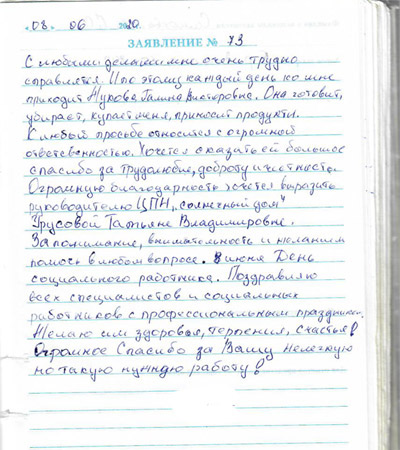 "08" 06 2020
ЗАЯВЛЕНИЕ № 73
С любыми делами мне очень трудно
справлятся. И по этому каждый день ко мне
приходит Жукова Галина Викторовна. Она готовит,
убирает, купает меня, приносит продукты.
К любой прозьбе относится с огромной
ответственностью. Хочется сказать ей большое
спасибо за трудолюбие, доброту и честность.
Огромную благодарность хочется выразить
руководителю ЦПН "солнечный дом"
Урусовой Татьяне Владимировне.
За понимание, внимательность и желанием
помочь в любом вопросе. 8 июня День
социального работника. Поздравляю
всех специалистов и социальных
работников с профессиональным праздником.
Желаю им здоровья, терпения, счастья!
Огромное Спасибо за Вашу нелегкую
но такую нужную работу!